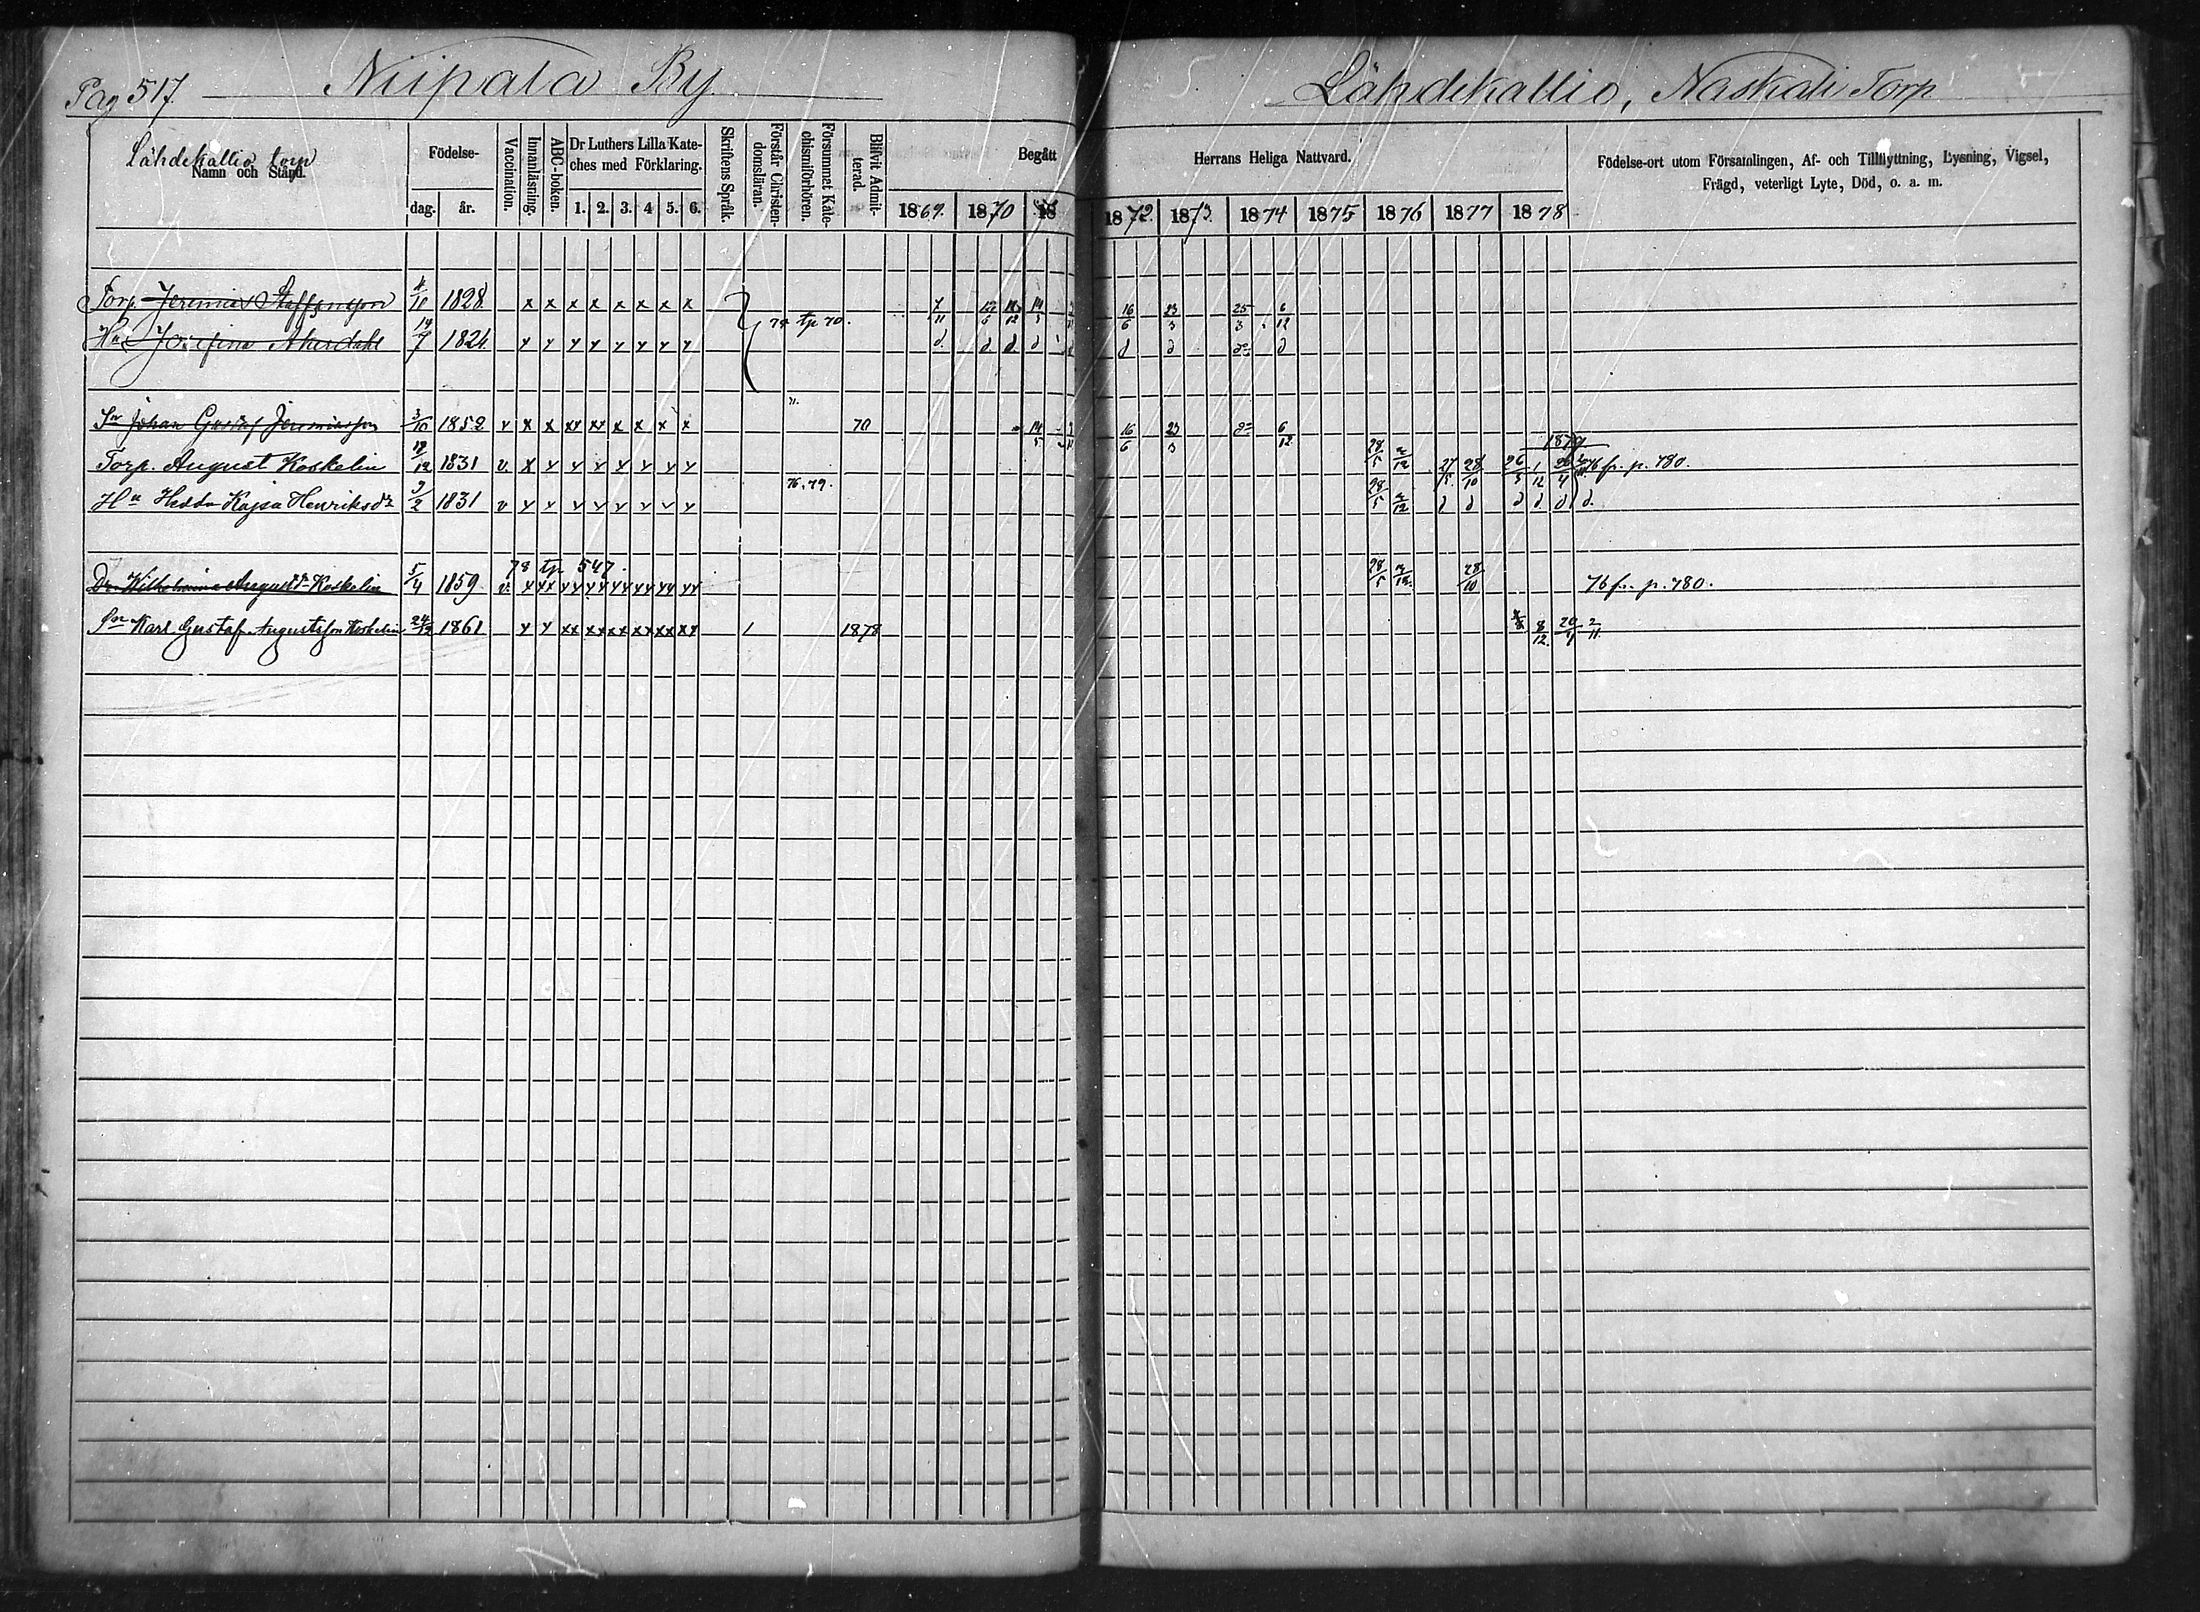 Pag 517.
Niipala By
Lähdekallio, Naskali Torp
Lähdekallio torp
Namn och Stånd.
Födelse-
dag. år.
Vaccination.
Innanläsning.
ABC-boken.
Dr Luthers Lilla Kate-
ches med Förklaring.
1. 2. 3. 4 5. 6.
Skriftens Språk.
Förstår Christen-
domsläran.
Försummat Kate-
chismiförhören.
Blifvit Admit-
terad.
Begått
Herrans Heliga Nattvard.
1869. 1870 18
1872. 1873. 1874 1875 1876 1877 1878
Födelse-ort utom Församlingen, Af- och Tillflyttning, Lysning, Vigsel,
Frägd, veterligt Lyte, Död, o. a. m.
Torp. Jeremias Staffansson 1828 x x x x x x x x
7/11 14/5 16/6 23/3 25/3 6/12
tp 70.
Hu Josefina Akerdahl 1824
Sn Johan Gustaf Jeremiasson 3/10 1852 v x x xx xx x x x x 70 14/5 16/6 23/3 6/12
1879
Torp. August Koskelin 1831 v. 28/5 27/5 28/10 26/5 1/12 76 fr. p. 780.
76. 79.
Hu Hedda Kajsa Henriksdr 3/2 1831 v 28/5
78 tp 547.
Dr Wilhelmina Augustdr Koskelin 5/4 1859 v. 28/5 28/10 76 fr. p. 780.
Sn Karl Gustaf Augustsson Koskelin 1861 1878 8/12. 2/11.